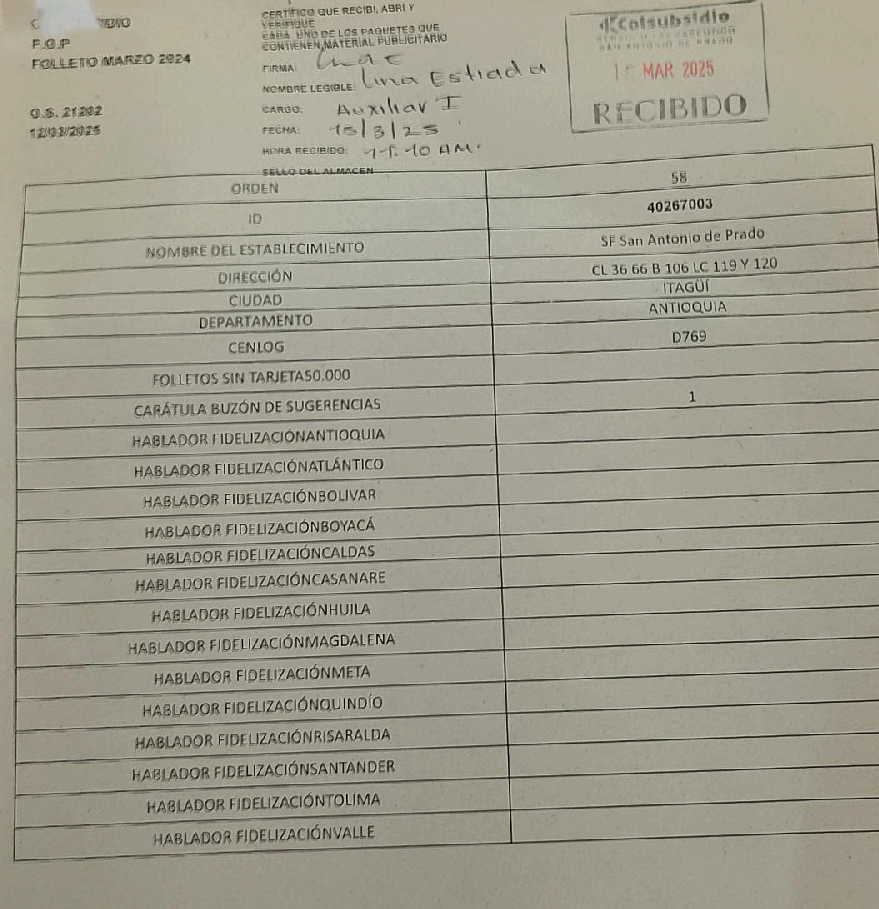 P.O.P
FOLLETO MARZO 2024
O.S. 21202
12/03/2025
CERTIFICO QUE RECIBI, ABRI Y
VERIFIQUE
CADA UNO DE LOS PAQUETES QUE
CONTIENEN MATERIAL PUBLICITARIO
FIRMA:
NOMBRE LEGIBLE: Lina Estrada
CARGO: Auxiliar I
FECHA: 15/3/25
HORA RECIBIDO: 11:10 AM.
SELLO DEL ALMACEN
Colsubsidio
SAN ANTONIO DE PRADO
MAR 2025
RECIBIDO
ORDEN 58
ID 40267003
NOMBRE DEL ESTABLECIMIENTO SF San Antonio de Prado
DIRECCIÓN CL 36 66 B 106 LC 119 Y 120
CIUDAD ITAGÜÍ
DEPARTAMENTO ANTIOQUIA
CENLOG D769
FOLLETOS SIN TARJETA50.000
CARÁTULA BUZÓN DE SUGERENCIAS 1
HABLADOR FIDELIZACIÓNANTIOQUIA
HABLADOR FIDELIZACIÓNATLÁNTICO
HABLADOR FIDELIZACIÓNBOLIVAR
HABLADOR FIDELIZACIÓNBOYACÁ
HABLADOR FIDELIZACIÓNCALDAS
HABLADOR FIDELIZACIÓNCASANARE
HABLADOR FIDELIZACIÓNHUILA
HABLADOR FIDELIZACIÓNMAGDALENA
HABLADOR FIDELIZACIÓNMETA
HABLADOR FIDELIZACIÓNQUINDÍO
HABLADOR FIDELIZACIÓNRISARALDA
HABLADOR FIDELIZACIÓNSANTANDER
HABLADOR FIDELIZACIÓNTOLIMA
HABLADOR FIDELIZACIÓNVALLE